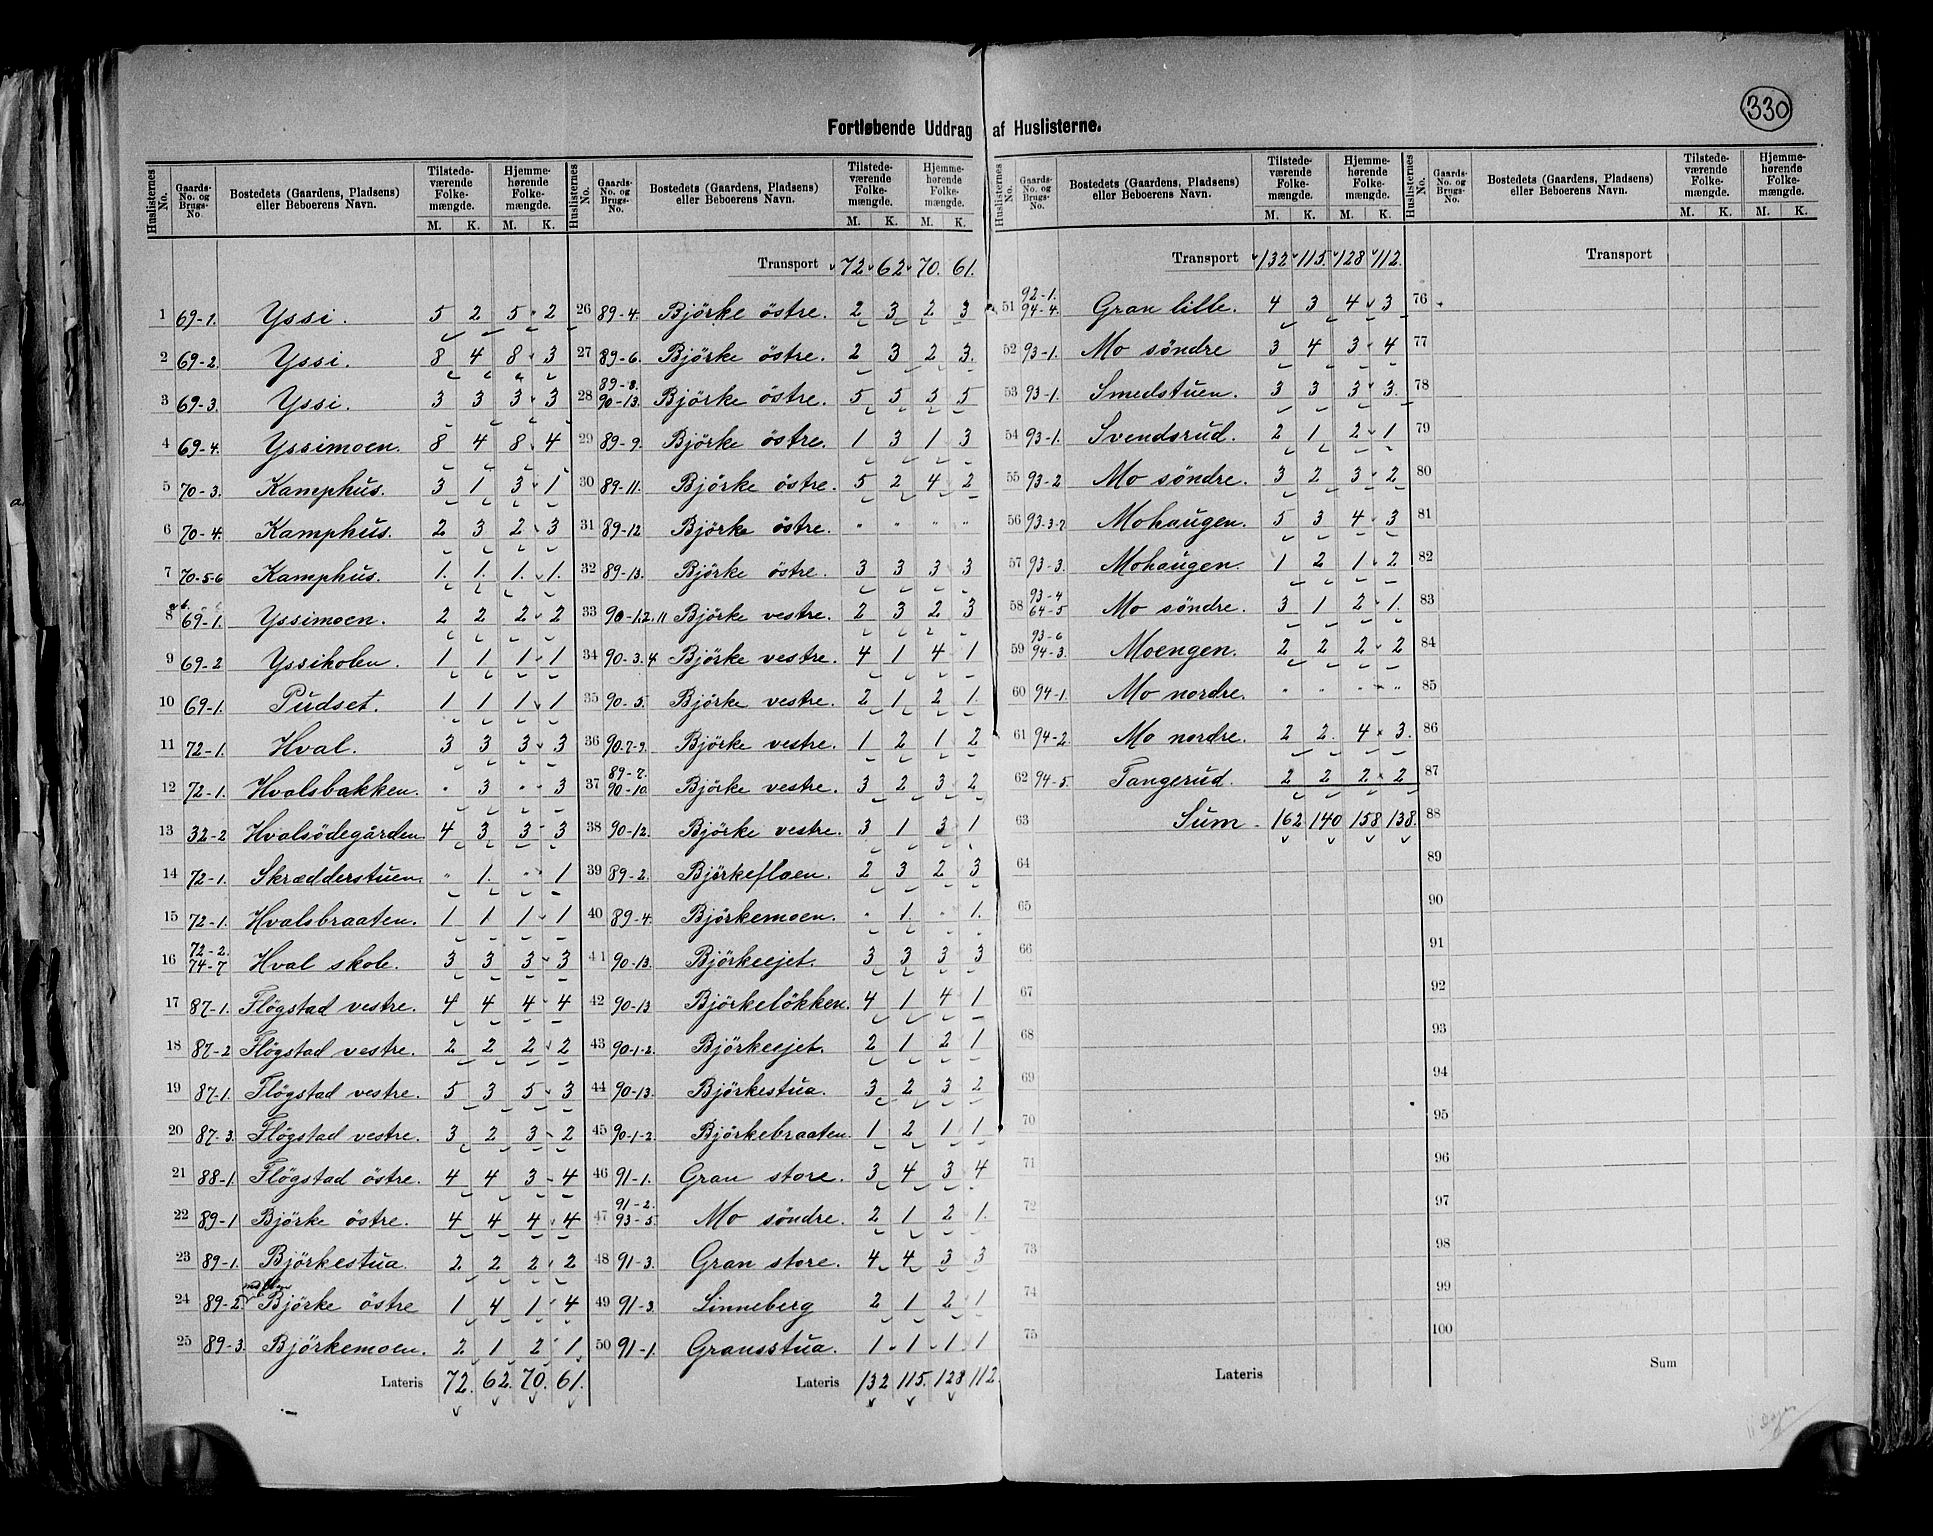 330
Fortløbende Uddrag af Huslisterne.
Huslisternes No. | Gaards-No. og Brugs-No. | Bostedets (Gaardens, Pladsens) eller Beboerens Navn. | Tilstede-værende Folke-mængde. M. K. | Hjemme-hørende Folke-mængde. M. K.
1 69-1. Yssi. 5 2 5 2
2 69-2. Yssi. 8 4 8 3
3 69-3. Yssi. 3 3 3 3
4 69-4. Yssimoen. 8 4 8 4
5 70-3. Kamphus. 3 1 3 1
6 70-4. Kamphus. 2 3 2 3
7 70-5-6 Kamphus. 1. 1. 1. 1.
8 69-1. Yssimoen. 2 2 2 2
9 69-2 Yssiholen. 1 1 1 1
10 69-1. Pudset. 1 1 1 1
11 72-1. Hval. 3 3 3 3
12 72-1. Hvalsbakken. " 3 " 3
13 32-2 Hvalsödegården. 4 3 3 3
14 72-1. Skrædderstuen. " 1. " 1
15 72-1. Hvalsbraaten. 1 1. 1 1
16 72-2. 74-7 Hval skole. 3 3 3 3
17 87-1. Flögstad vestre. 4 4 4 4
18 87-2 Flögstad vestre. 2 2 2 2
19 87-1. Flögstad vestre. 5 3 5 3
20 87-3. Flögstad vestre. 3 2 3 2
21 88-1 Flögstad östre. 4 4 3 4
22 89-1 Björke östre. 4 4 4 4
23 89-1. Björkestua 2 2 2 2
24 89-2. Björke östre 1 4 1 4
25 89-3. Björkemoen. 2 1 2 1
Lateris 72. 62. 70. 61.
Huslisternes No. | Gaards-No. og Brugs-No. | Bostedets (Gaardens, Pladsens) eller Beboerens Navn. | Tilstede-værende Folke-mængde. M. K. | Hjemme-hørende Folke-mængde. M. K.
Transport 72 62 70. 61.
26 89-4. Björke östre. 2 3 2 3
27 89-6. Björke östre. 2 3 2 3.
28 89-8. 90-13. Björke östre. 5 5 5 5
29 89-9. Björke östre. 1 3 1 3
30 89-11. Björke östre. 5 2 4 2
31 89-12 Björke östre. " " " "
32 89-13. Björke östre. 3 3 3 3
33 90-1.2.11 Björke vestre. 2 3 2 3
34 90-3.4 Björke vestre. 4 1 4 1
35 90-5. Björke vestre. 2 1 2 1.
36 90-7-9. Björke vestre. 1 2 1 2
37 89-7. 90-10. Björke vestre. 3 2 3 2
38 90-12. Björke vestre. 3 1 3 1
39 89-2. Björkefloen. 2 3 2 3
40 89-4. Björkemoen. " 1. " 1.
41 90-13. Björkeejet. 3 3 3 3
42 90-13 Björkelökken. 4 1 4 1
43 90-1-2. Björkeejet. 2 1 2 1
44 90-13. Björkestua. 3 2 3 2
45 90-1-2. Björkebraaten. 1 2 1 1
46 91-1. Gran store. 3 4 3 4
47 91-2. 93-5. Mo söndre. 2 1 2 1.
48 91-3. Gran store. 4 4 3 3
49 91-3. Linneberg 2 1 2 1
50 91-1. Gransstua. 1 1 1 1
Lateris 132 115. 128 112.
Huslisternes No. | Gaards-No. og Brugs-No. | Bostedets (Gaardens, Pladsens) eller Beboerens Navn. | Tilstede-værende Folke-mængde. M. K. | Hjemme-hørende Folke-mængde. M. K.
Transport 132 115. 128 112.
51 92-1. 94-4. Gran lille. 4 3 4 3
52 93-1. Mo söndre 3 4 3 4
53 93-1. Smedstuen. 3 3 3 3.
54 93-1. Svendsrud. 2 1 2 1
55 93-2 Mo söndre. 3 2 3 2
56 93-3-2 Mohaugen. 5 3 4 3
57 93-3. Mohaugen. 1 2 1 2
58 93-4 64-5 Mo söndre. 3 1 2 1.
59 93-6 94-3. Moengen. 2 2 2 2
60 94-1. Mo nordre. " " " "
61 94-2. Mo nordre. 2 2. 4 3.
62 94-5. Tangerud. 2 2 2 2
63 Sum 162 140 158 138.
64
65
66
67
68
69
70
71
72
73
74
75
Lateris
Huslisternes No. | Gaards-No. og Brugs-No. | Bostedets (Gaardens, Pladsens) eller Beboerens Navn. | Tilstede-værende Folke-mængde. M. K. | Hjemme-hørende Folke-mængde. M. K.
Transport
76
77
78
79
80
81
82
83
84
85
86
87
88
89
90
91
92
93
94
95
96
97
98
99
100
Sum